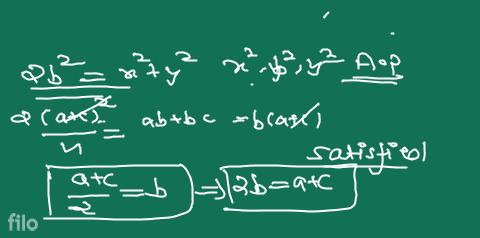 2b² = x² + y² x², b², y² A.P
2(a+c)²/4 = ab+bc = b(a+c)
satisfied
a+c/2 = b ⇒ 2b = a+c
filo